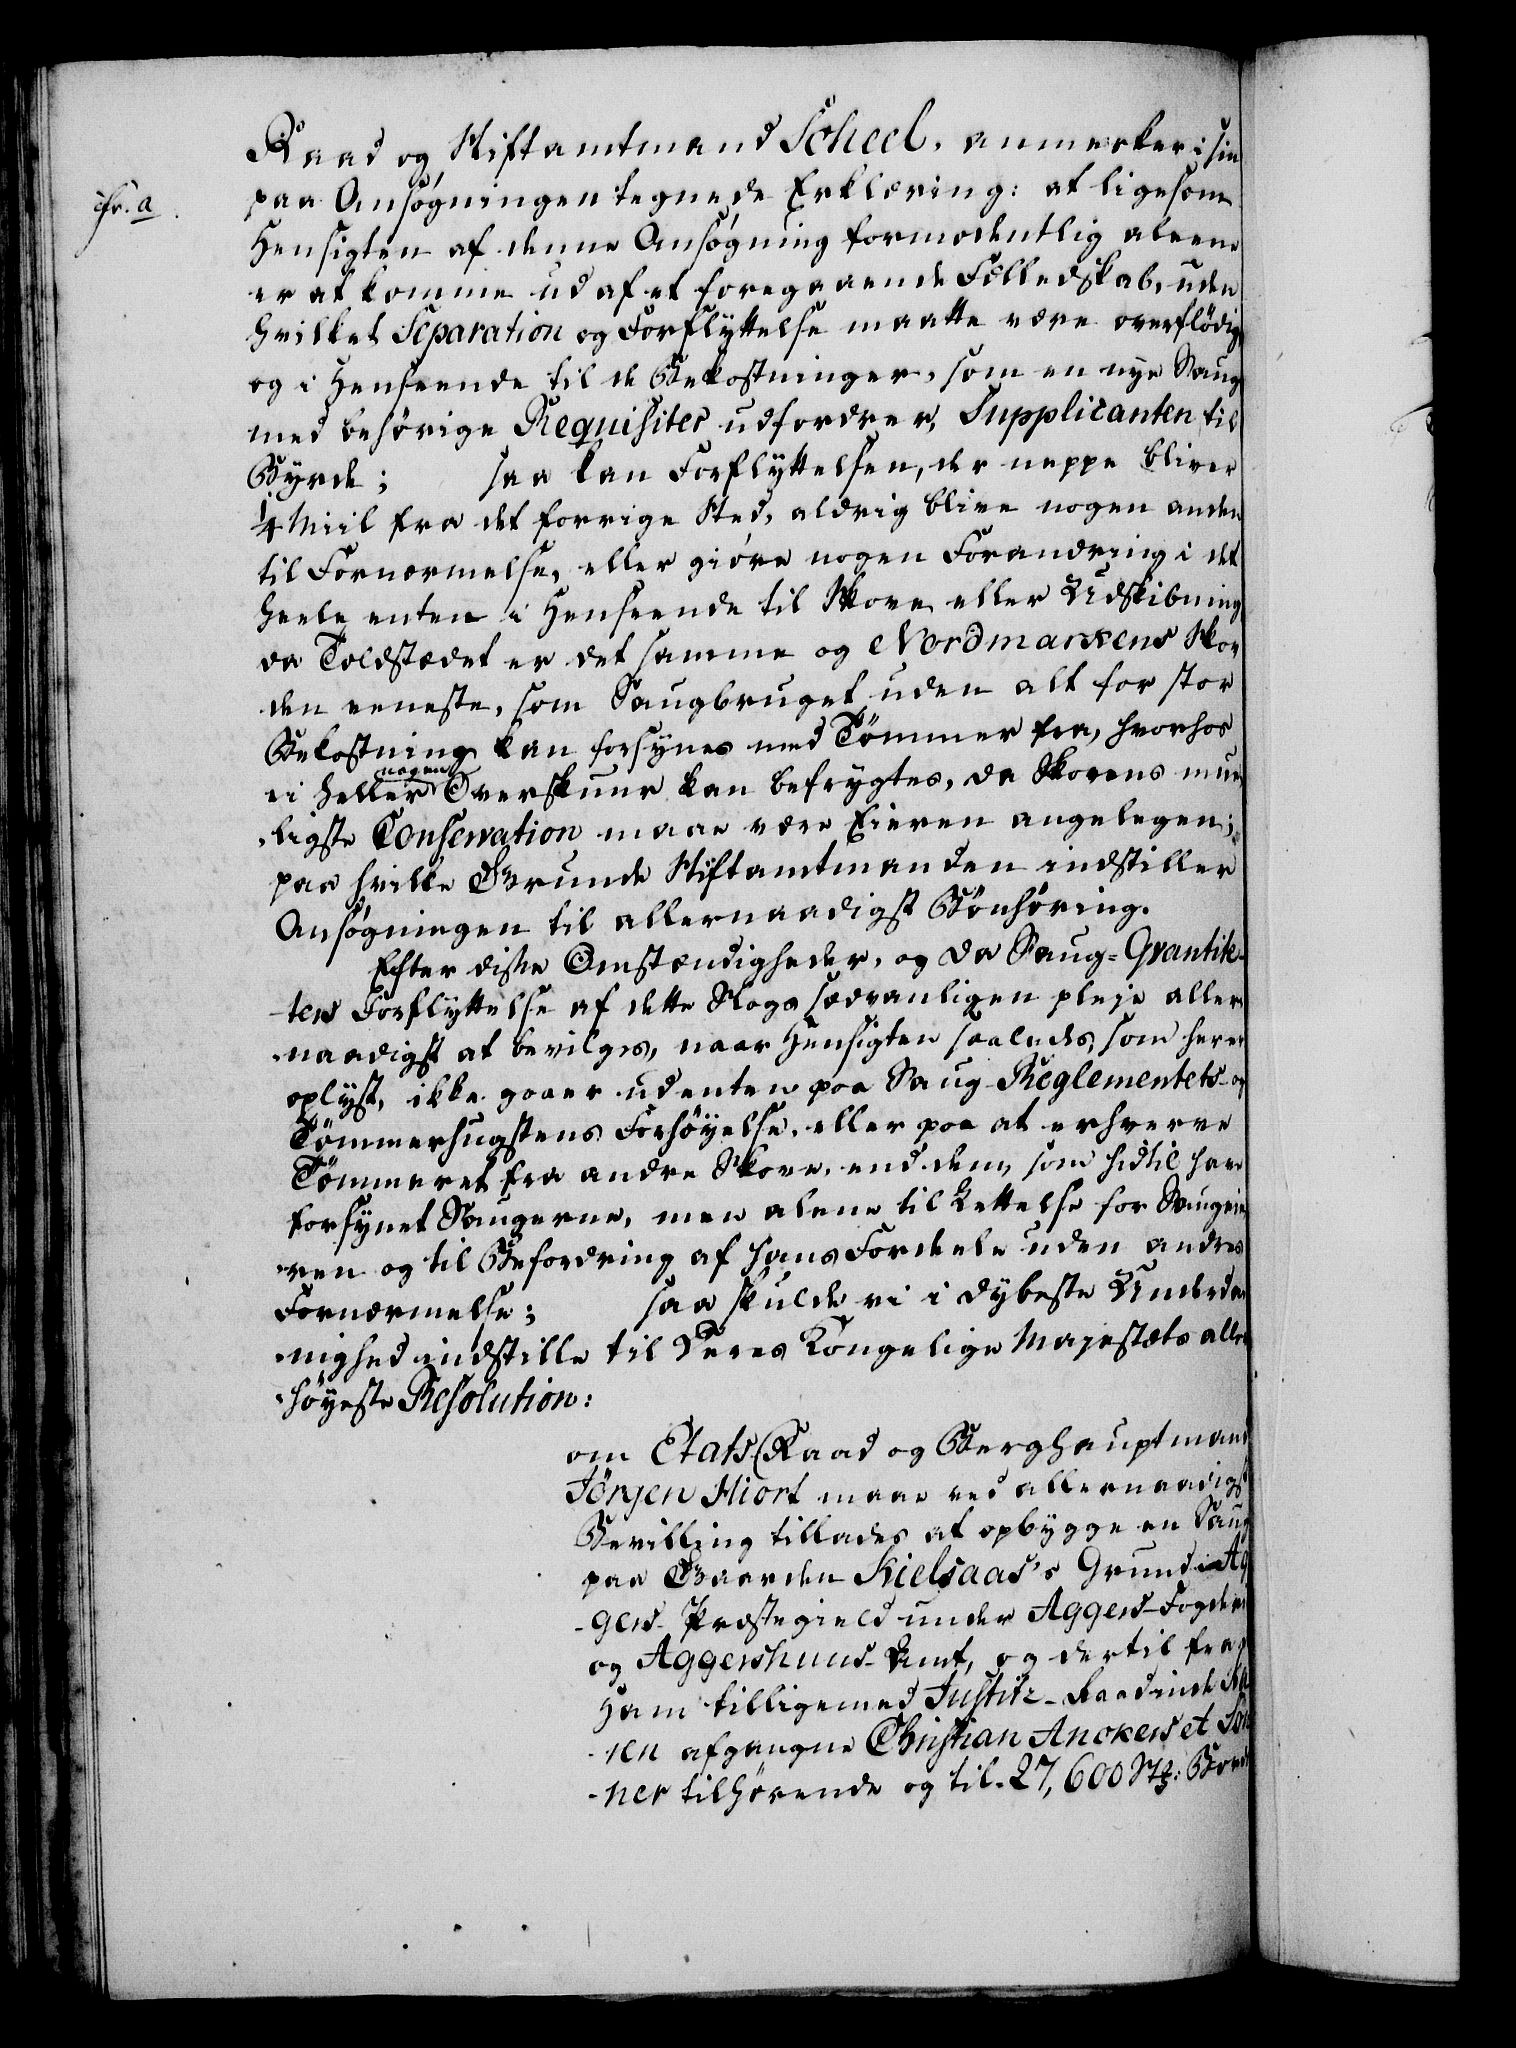 Raad og Stiftamtmand Scheel, anmerker i sin
cfr. a.
paa Ansøgningen tegnede Erklæring: at ligesom
Hensigten af denne Ansøgning formodentlig aleene
er at komme ud af et foregaaende Fælledskab, uden
hvilket Separation og Forflyttelse maatte være overflödig,
og i Henseende til de Bekostninger, som en nye Saug
med behørige Requisiter udfordrer, Supplicanten til
Byrde; saa kan Forflyttelsen, der neppe bliver
1/4 Miil fra det forrige Sted, aldrig blive nogen anden
til Fornærmelse, eller giöre nogen Forandring i det
heele enten i Henseende til Skove eller Udskibning
da Toldstædet er det samme og Nordmarkens Skov
den eeneste, som Saugbruget uden alt for stor
Bekostning kan forsynes med Tömmer fra, hvorhos
ei heller nogen Overskuur kan befrygtes, da Skovens mue-
ligste Conservation maae være Eieren angelegen;
paa hvilke Grunde Stiftamtmanden indstiller
Ansøgningen til allernaadigst Bönhöring.
Efter disse Omstændigheder, og da Saug-Qvantite-
ters Forflyttelse af dette Slags sædvanligen pleje aller-
naadigst at bevilges, naar Hensigten saaledes, som her er
oplyst, ikke gaaer ud enten paa Saug-Reglementets- og
Tömmerhugstens Forhöyelse, eller paa at erhverve
Tömmeret fra andre Skove, end dem, som hidtil have
forsynet Saugerne, men alene til Lettelse for Saugeie-
ren og til Befordring af hans Fordeele uden andres
Fornærmelse; saa skulde vi i dybeste Underda-
nighed indstille til Deres Kongelige Majestæts aller-
höyeste Resolution:
om Etats Raad og Berghauptmand
Jörgen Hiort maae ved allernaadigst
Bevilling tillades at opbygge en Saug
paa Gaarden Kielsaas's Grund i Ag-
gers- Præstegield under Aggers-Fogderie
og Aggershuus-Amt, og dertil fra
Ham tilligemed Justitz-Raadinde
ren afgangne Christian Anckers et Sön-
ner tilhørende og til 27,600 Stk: Bord